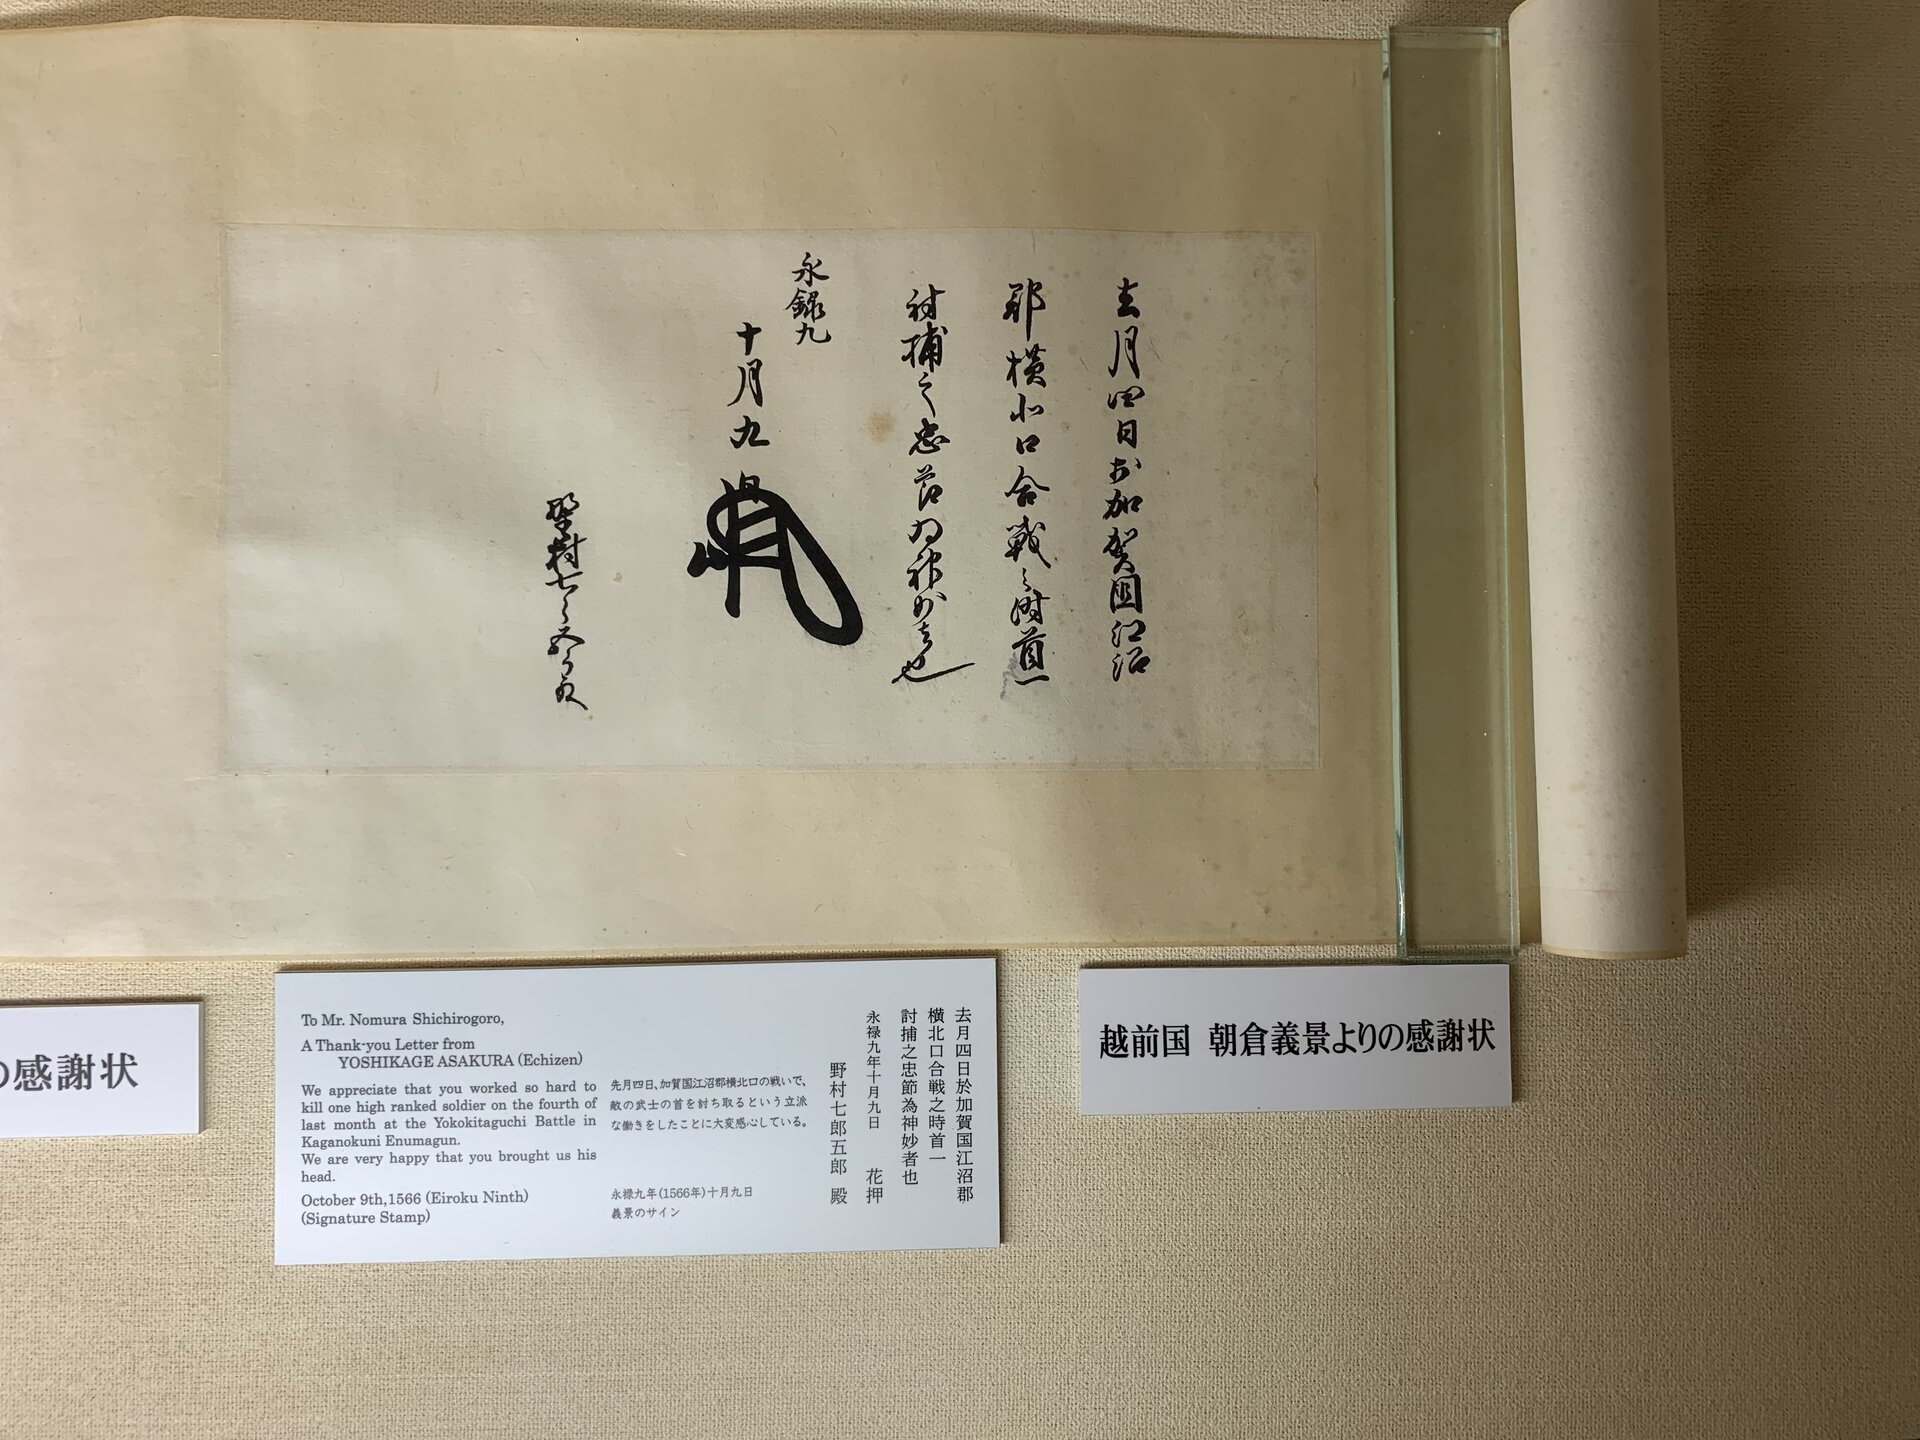 去月四日於加賀国江沼
郡横北口合戦之時首一
討捕之忠節為神妙者也
永録九
十月九日
野村七郎五郎殿
越前国 朝倉義景よりの感謝状
去月四日於加賀国江沼郡
横北口合戦之時首一
討捕之忠節為神妙者也
永禄九年十月九日 花押
野村七郎五郎 殿
先月四日、加賀国江沼郡横北口の戦いで、
敵の武士の首を討ち取るという立派
な働きをしたことに大変感心している。
永禄九年(1566年)十月九日
義景のサイン
To Mr. Nomura Shichirogoro,
A Thank-you Letter from
YOSHIKAGE ASAKURA (Echizen)
We appreciate that you worked so hard to
kill one high ranked soldier on the fourth of
last month at the Yokokitaguchi Battle in
Kaganokuni Enumagun.
We are very happy that you brought us his
head.
October 9th,1566 (Eiroku Ninth)
(Signature Stamp)
の感謝状